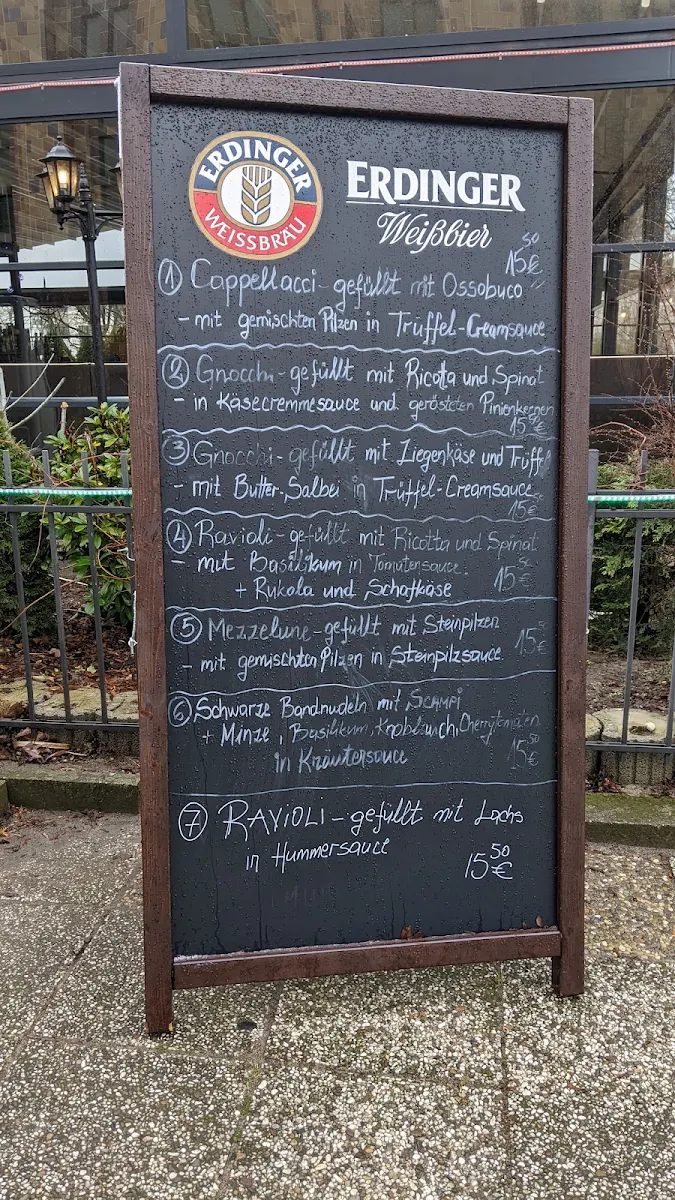 ERDINGER
WEISSBRÄU
ERDINGER
Weißbier
15 50 €
① Cappellacci - gefüllt mit Ossobuco
- mit gemischten Pilzen in Trüffel-Creamsauce
② Gnocchi - gefüllt mit Ricotta und Spinat
- in Käsecremmesauce und gerösteten Pinienkernen
15 50 €
③ Gnocchi - gefüllt mit Ziegenkäse und Trüffel
- mit Butter-Salbei in Trüffel-Creamsauce
15 50 €
④ Ravioli - gefüllt mit Ricotta und Spinat
- mit Basilikum in Tomatensauce
+ Rukola und Schafkäse 15 50 €
⑤ Mezzelune - gefüllt mit Steinpilzen
- mit gemischten Pilzen in Steinpilzsauce 15 50 €
⑥ Schwarze Bandnudeln mit SCAMPI
+ Minze, Basilikum, Knoblauch, Cherrytomaten
in Kräutersauce 15 50 €
⑦ RAViOLi - gefüllt mit Lachs
in Hummersauce
15 50 €